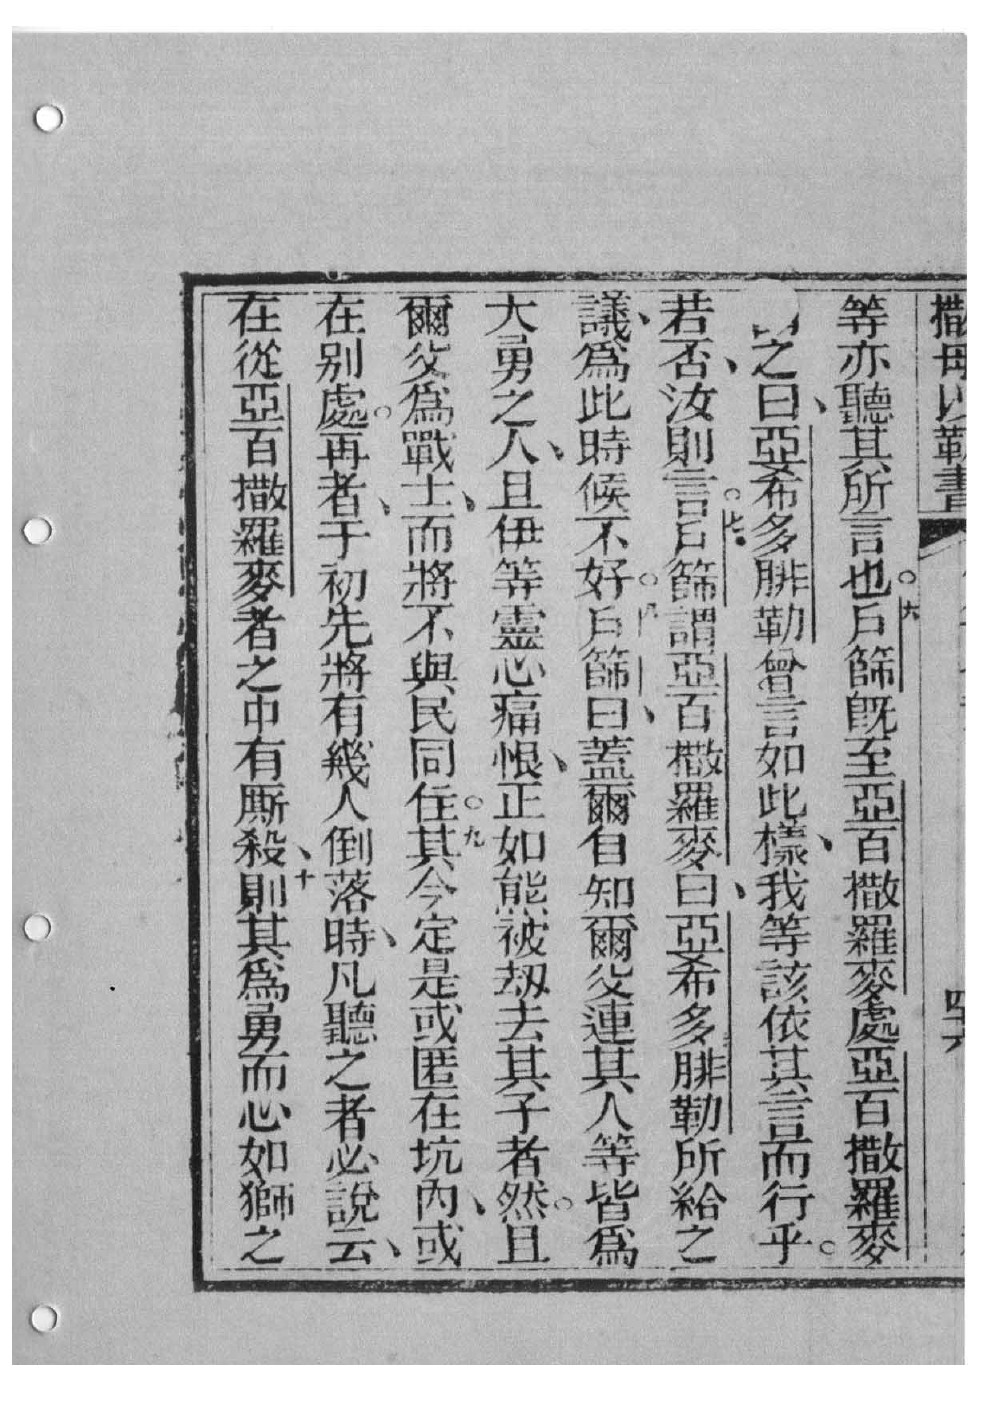 撒母以勒書 四十六
等亦聽其所言也。六戶篩旣至亞百撒羅麥處亞百撒羅麥
之曰、亞希多腓勒曾言如此樣、我等該依其言而行乎。
若否、汝則言。七戶篩謂亞百撒羅麥曰、亞希多腓勒所給之
議、爲此時候不好。八戶篩曰、蓋爾自知爾父連其人等皆爲
大勇之人、且伊等靈心痛恨、正如熊被刼去其子者然。且
爾父爲戰士、而將不與民同住。九其今定是或匿在坑內、或
在別處。再者、于初先將有幾人倒落時、凡聽之者必說云、
在從亞百撒羅麥者之中有厮殺、十則其爲勇而心如獅之